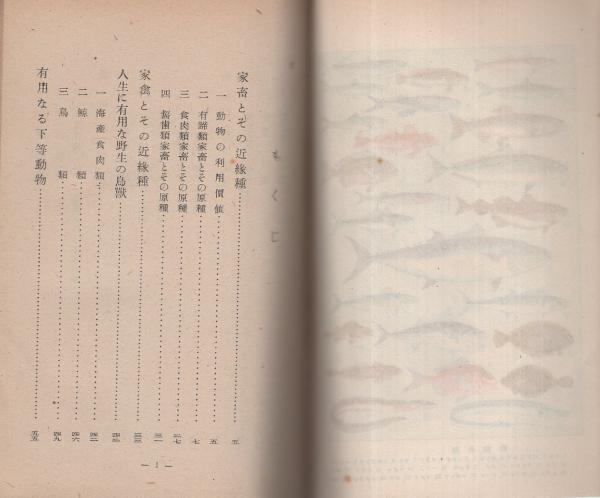 もくじ
家畜とその近縁種…………五
一 動物の利用價値…………五
二 有蹄類家畜とその原種…………七
三 食肉類家畜とその原種…………二七
四 齧歯類家畜とその原種…………三一
家禽とその近縁種…………三三
人生に有用な野生の鳥獸…………四二
一 海産食肉類…………四二
二 鯨類…………四六
三 鳥類…………四九
有用なる下等動物…………五五
— 1 —